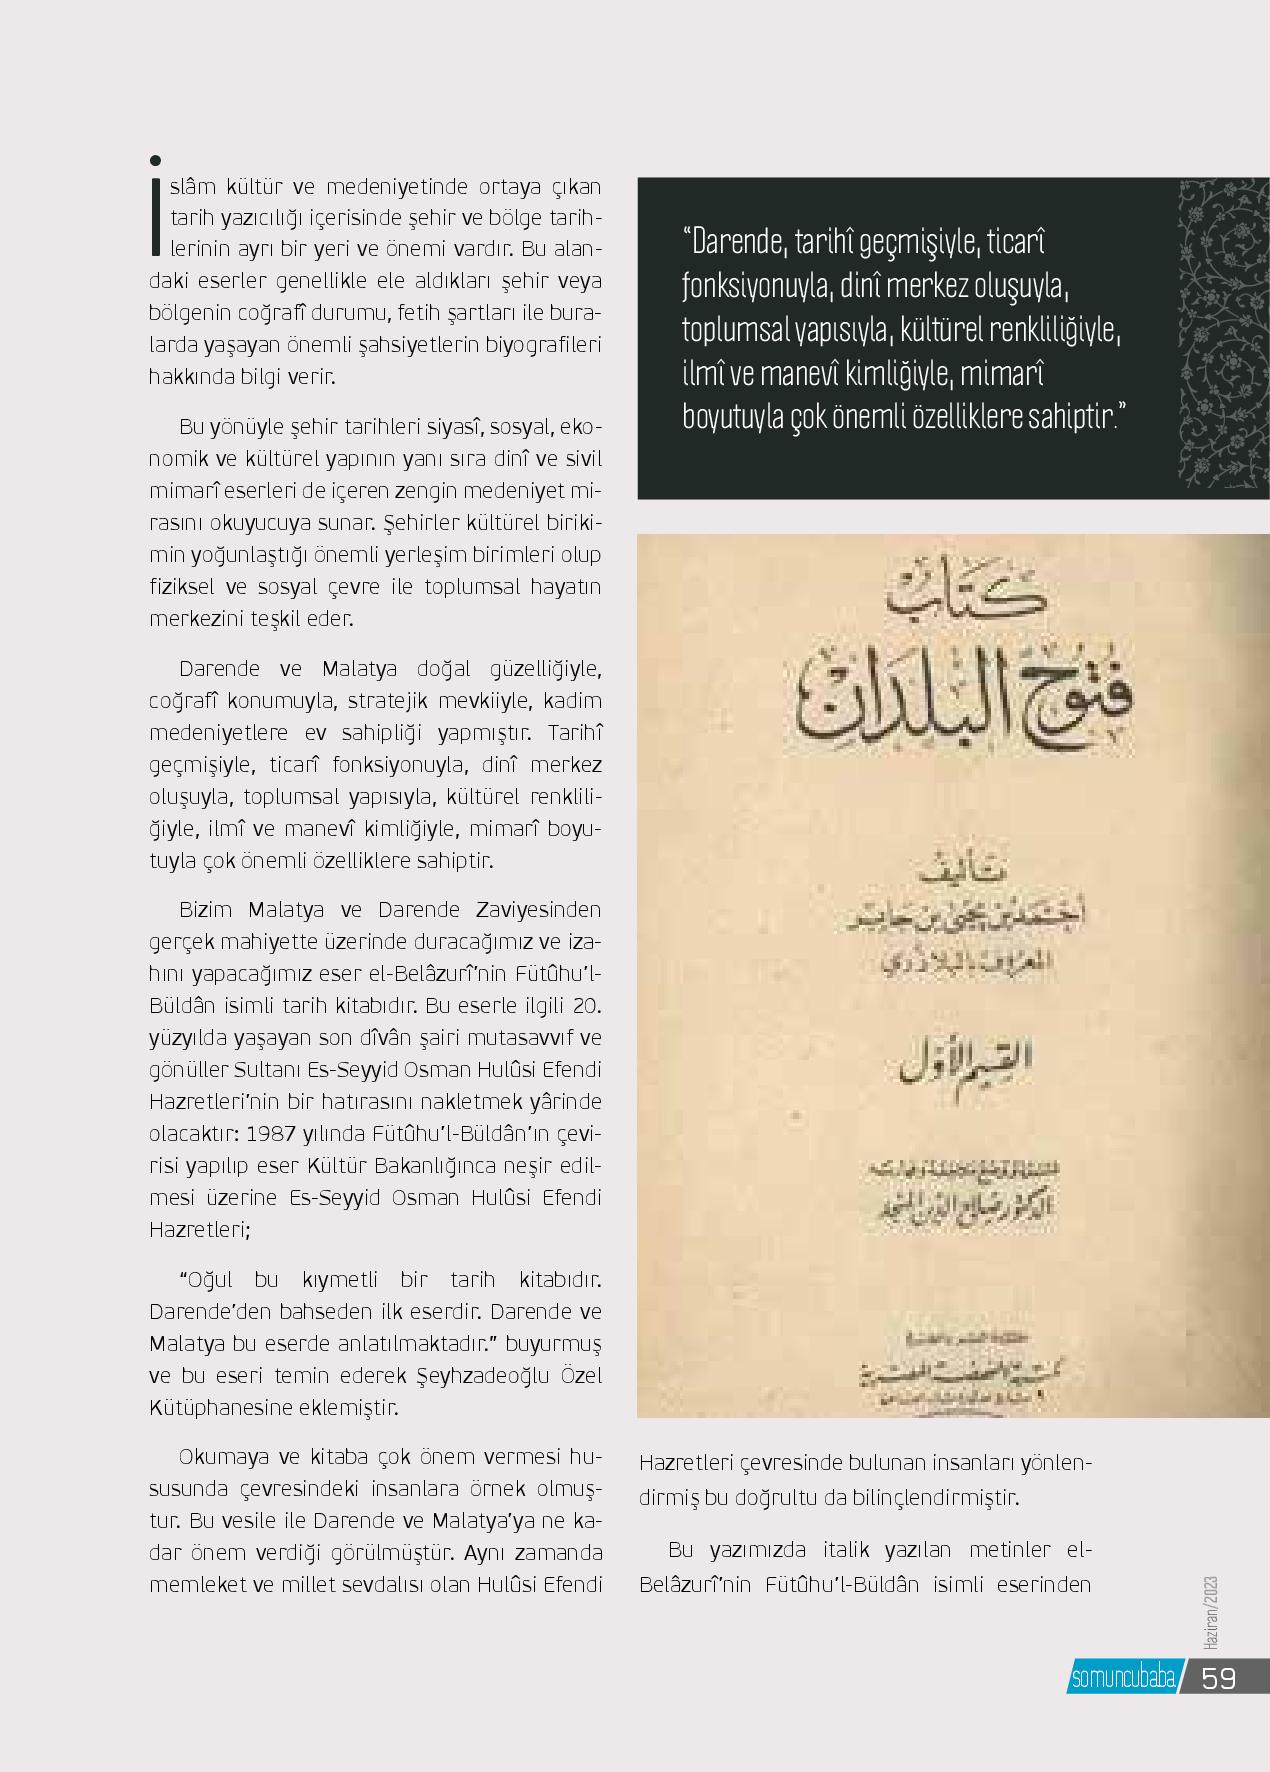 İslâm kültür ve medeniyetinde ortaya çıkan
tarih yazıcılığı içerisinde şehir ve bölge tarih-
lerinin ayrı bir yeri ve önemi vardır. Bu alan-
daki eserler genellikle ele aldıkları şehir veya
bölgenin coğrafî durumu, fetih şartları ile bura-
larda yaşayan önemli şahsiyetlerin biyografileri
hakkında bilgi verir.
Bu yönüyle şehir tarihleri siyasî, sosyal, eko-
nomik ve kültürel yapının yanı sıra dinî ve sivil
mimarî eserleri de içeren zengin medeniyet mi-
rasını okuyucuya sunar. Şehirler kültürel biriki-
min yoğunlaştığı önemli yerleşim birimleri olup
fiziksel ve sosyal çevre ile toplumsal hayatın
merkezini teşkil eder.
Darende ve Malatya doğal güzelliğiyle,
coğrafî konumuyla, stratejik mevkiiyle, kadim
medeniyetlere ev sahipliği yapmıştır. Tarihî
geçmişiyle, ticarî fonksiyonuyla, dinî merkez
oluşuyla, toplumsal yapısıyla, kültürel renklili-
ğiyle, ilmî ve manevî kimliğiyle, mimarî boyu-
tuyla çok önemli özelliklere sahiptir.
Bizim Malatya ve Darende Zaviyesinden
gerçek mahiyette üzerinde duracağımız ve iza-
hını yapacağımız eser el-Belâzurî’nin Fütûhu’l-
Büldân isimli tarih kitabıdır. Bu eserle ilgili 20.
yüzyılda yaşayan son dîvân şairi mutasavvıf ve
gönüller Sultanı Es-Seyyid Osman Hulûsi Efendi
Hazretleri’nin bir hatırasını nakletmek yârinde
olacaktır: 1987 yılında Fütûhu’l-Büldân’ın çevi-
risi yapılıp eser Kültür Bakanlığınca neşir edil-
mesi üzerine Es-Seyyid Osman Hulûsi Efendi
Hazretleri;
“Oğul bu kıymetli bir tarih kitabıdır.
Darende’den bahseden ilk eserdir. Darende ve
Malatya bu eserde anlatılmaktadır.” buyurmuş
ve bu eseri temin ederek Şeyhzadeoğlu Özel
Kütüphanesine eklemiştir.
Okumaya ve kitaba çok önem vermesi hu-
susunda çevresindeki insanlara örnek olmuş-
tur. Bu vesile ile Darende ve Malatya’ya ne ka-
dar önem verdiği görülmüştür. Aynı zamanda
memleket ve millet sevdalısı olan Hulûsi Efendi
“Darende, tarihî geçmişiyle, ticarî
fonksiyonuyla, dinî merkez oluşuyla,
toplumsal yapısıyla, kültürel renkliliğiyle,
ilmî ve manevî kimliğiyle, mimarî
boyutuyla çok önemli özelliklere sahiptir.”
كتاب
فتوح البلدان
تأليف
أحمد بن يحيى بن جابر
المعروف بالبلاذري
القسم الأول
الدكتور صلاح الدين المنجد
Hazretleri çevresinde bulunan insanları yönlen-
dirmiş bu doğrultu da bilinçlendirmiştir.
Bu yazımızda italik yazılan metinler el-
Belâzurî’nin Fütûhu’l-Büldân isimli eserinden
Haziran/2023
somuncubaba 59